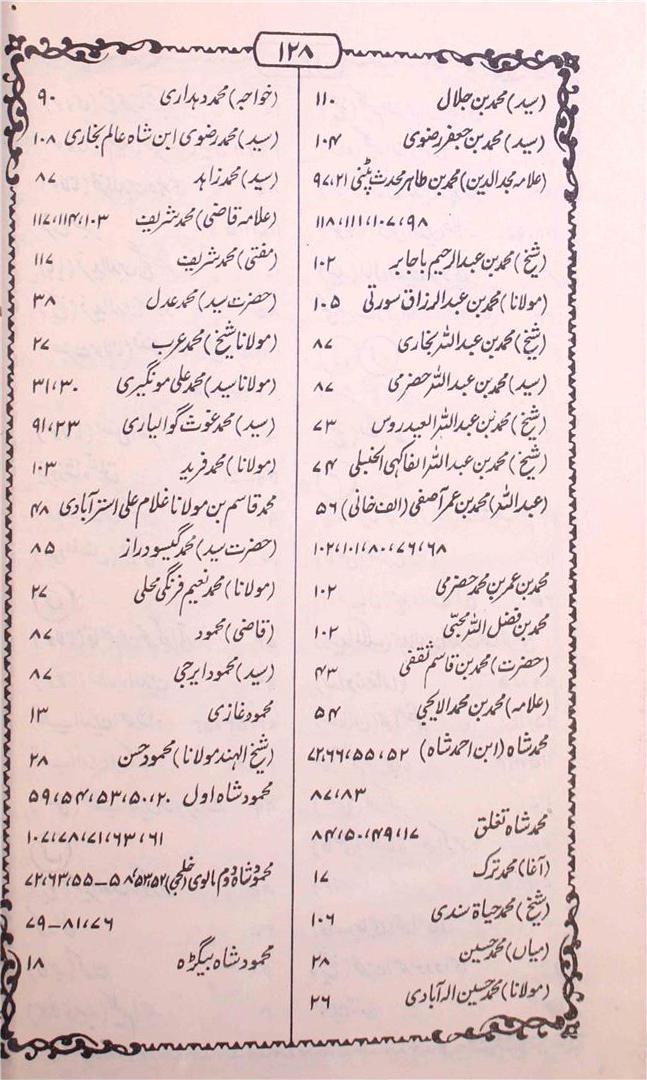 ۱۲۸
(سید) محمد بن جلال ۱۱۰
(سید) محمد بن جعفر رضوی ۱۰۴
(علامہ مجد الدین) محمد بن طاہر محدث پٹنی ۹۷،۲۱
۱۱۸،۱۱۱،۱۰۷،۹۸
(شیخ) محمد بن عبد الرحیم باجابر ۱۰۲
(مولانا) محمد بن عبد الرزاق سورتی ۱۰۵
(شیخ) محمد بن عبد اللہ بخاری ۸۷
(سید) محمد بن عبد اللہ حضرمی ۸۷
(شیخ) محمد بن عبد اللہ العیدروس ۷۳
(شیخ) محمد بن عبد اللہ الفاکہی الحنبلی ۷۴
(عبد اللہ) محمد بن عمر آصفی (الف خانی) ۵۶
۱۰۲،۱۰۱،۸۰،۷۶،۶۸
محمد بن عمر بن محمد حضرمی ۱۰۲
محمد بن فضل اللہ محبّی ۱۰۲
(حضرت) محمد بن قاسم ثقفی ۴۳
(علامہ) محمد بن محمد الایجی ۵۴
محمد شاہ (ابن احمد شاہ) ۷۲،۶۶،۵۵،۵۲
۸۷،۸۳
محمد شاہ تغلق ۸۴،۵۰،۴۹،۱۷
(آغا) محمد ترک ۱۷
(شیخ) محمد حیاۃ سندی ۱۰۶
(میاں) محمد حسین ۲۸
(مولانا) محمد حسین الہ آبادی ۲۶
(خواجہ) محمد دہداری ۹۰
(سید) محمد رضوی ابن شاہ عالم بخاری ۱۰۸
(سید) محمد زاہد ۸۷
(علامہ قاضی) محمد شریف ۱۱۷،۱۱۴،۱۰۳
(مفتی) محمد شریف ۱۱۷
(حضرت سید) محمد عدل ۳۸
(مولانا شیخ) محمد عرب ۲۷
(مولانا سید) محمد علی مونگیری ۳۱،۳۰
(سید) محمد غوث گوالیاری ۹۱،۲۳
(مولانا) محمد فرید ۱۰۳
محمد قاسم بن مولانا غلام علی استرآبادی ۴۸
(حضرت سید) محمد گیسودراز ۸۵
(مولانا) محمد نعیم فرنگی محلی ۲۷
(قاضی) محمود ۸۷
(سید) محمود ایرجی ۸۷
محمود غازی ۱۳
(شیخ الہند مولانا) محمود حسن ۲۸
محمود شاہ اول ۵۹،۵۴،۵۳،۵۰،۲۰
۱۰۷،۷۸،۷۱،۶۳،۶۱
محمود شاہ دوم مالوی (خلجی) ۵۲،۵۳،۵۸ـ۷۲،۶۳،۵۵
۷۹ـ۸۱،۷۶
محمود شاہ بیگڑہ ۱۸